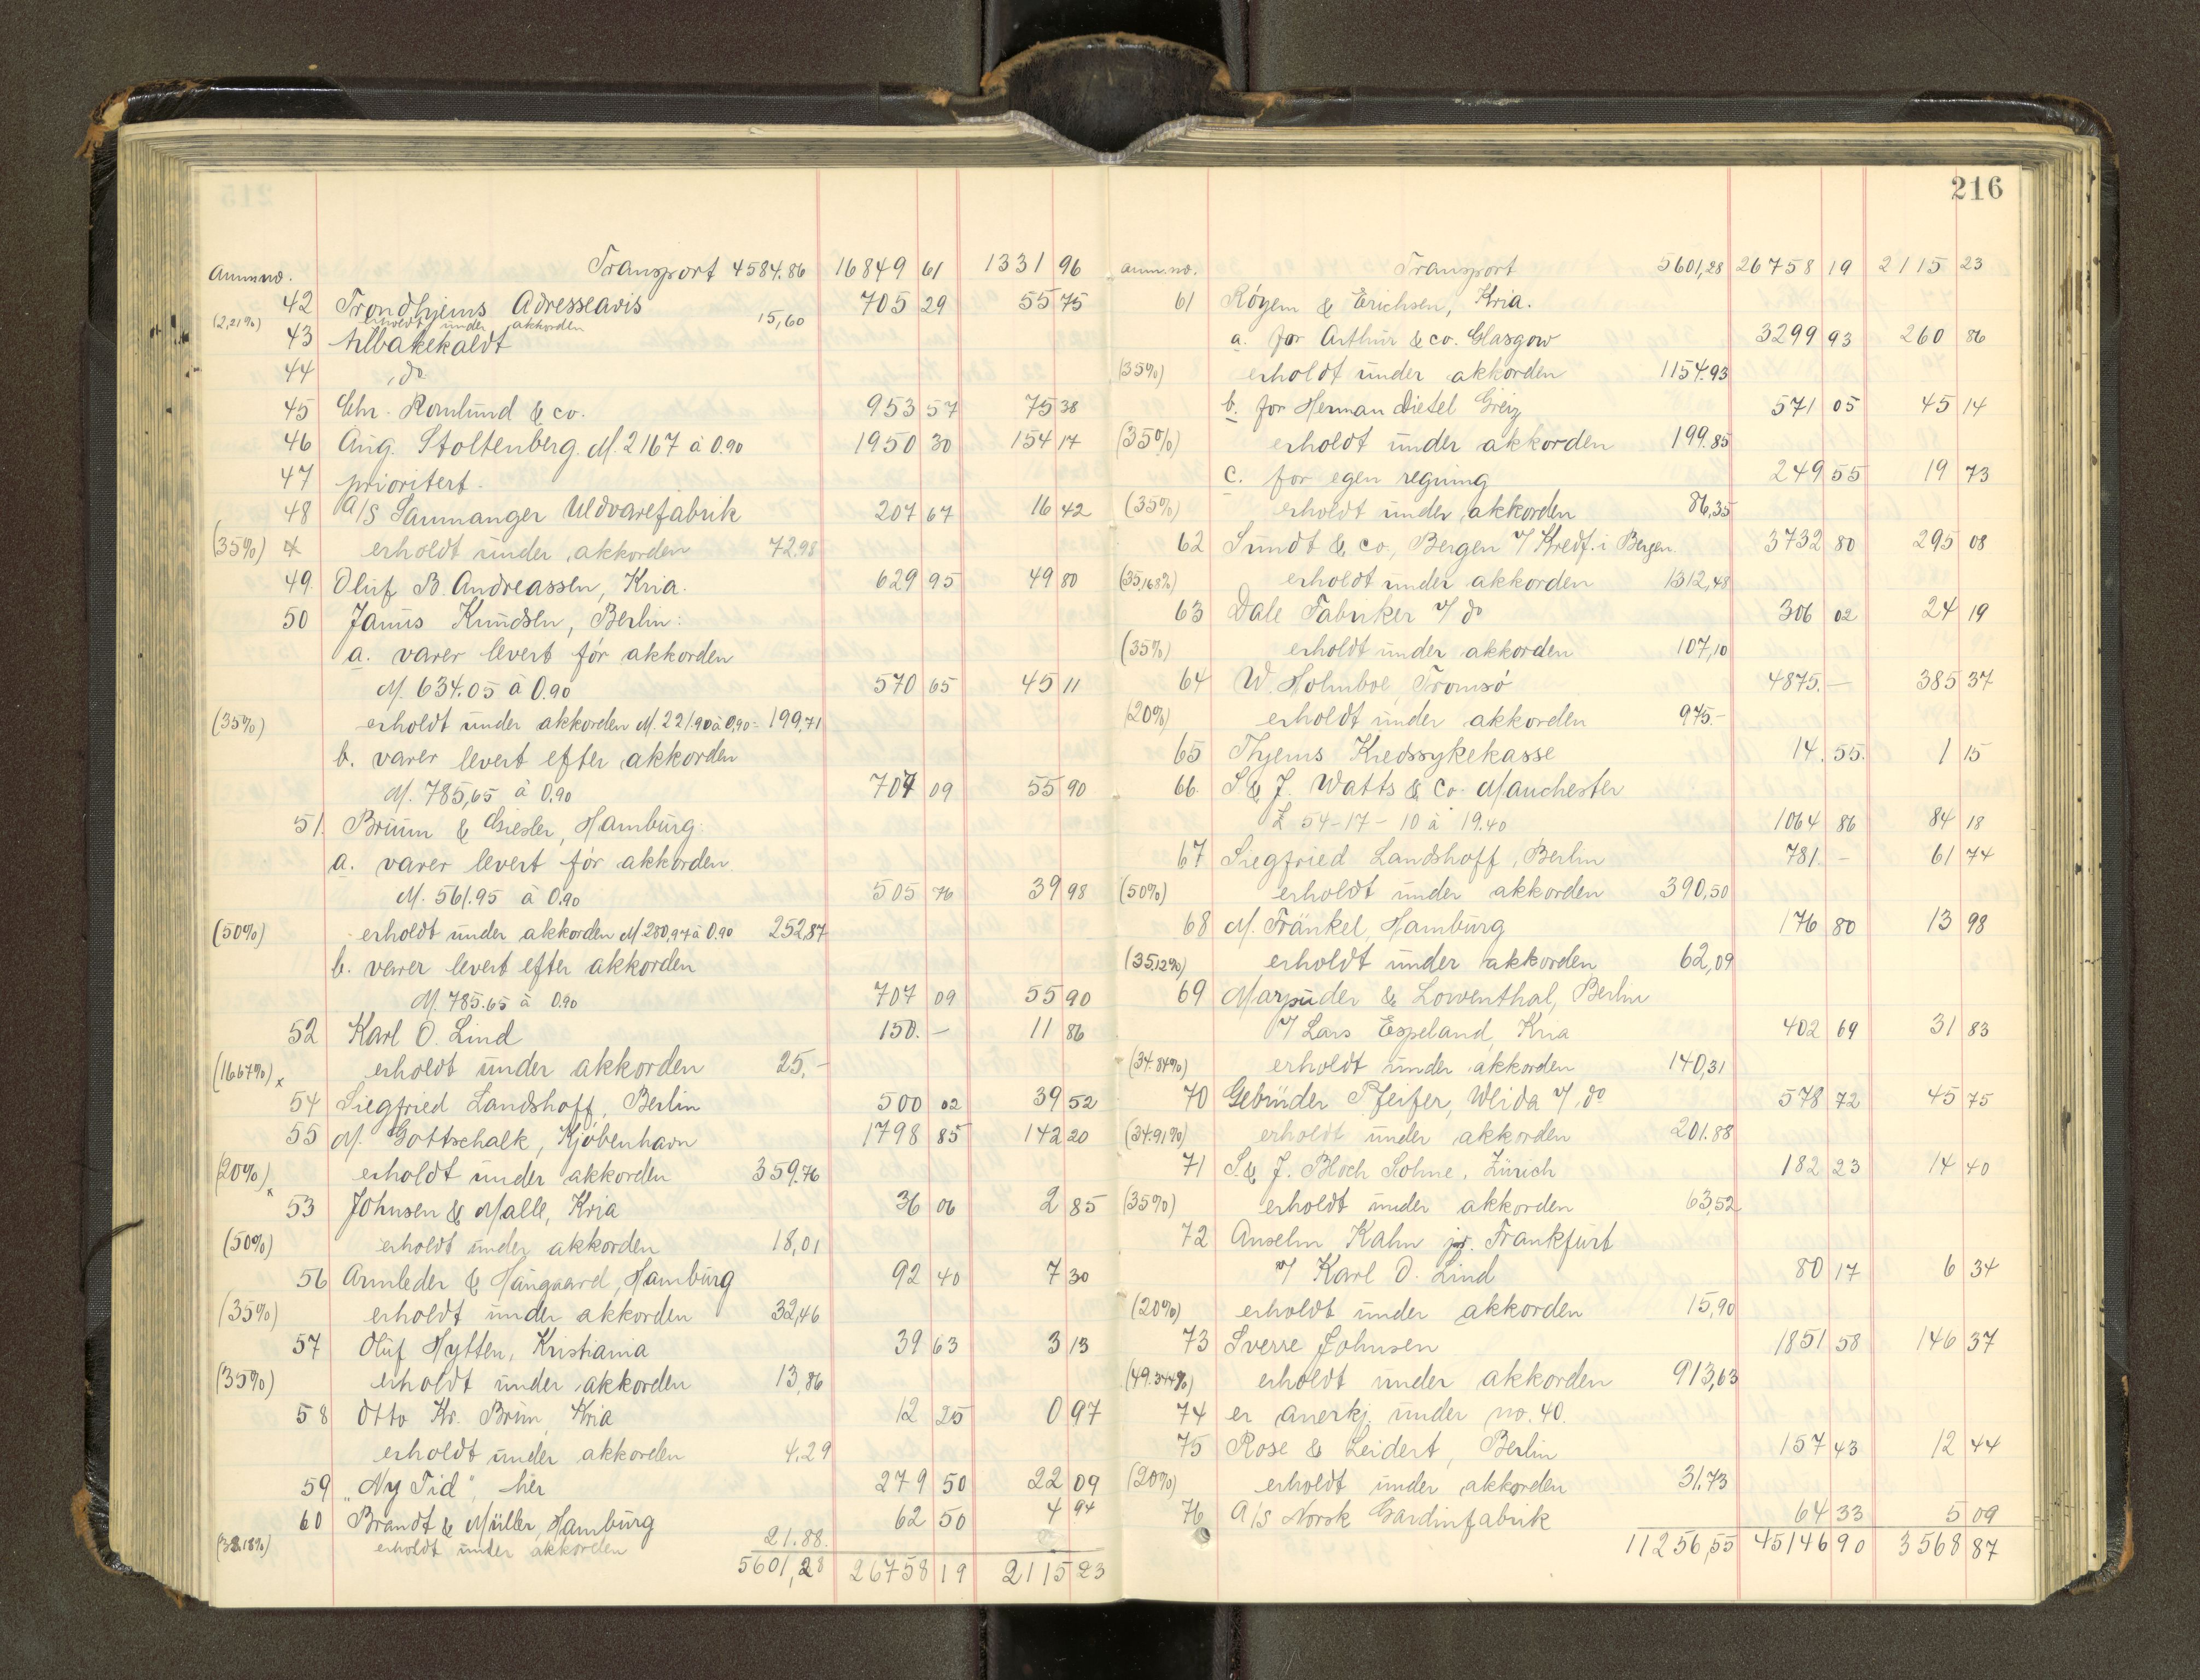 Anm.no. Transport 4584.86 16849 61 1331 96
42 Trondhjems Adresseavis 705 29 55 75
(2,21%) erholdt under akkorden 15,60
43 tilbakekaldt
44 do
45 Chr. Romlund & co. 953 57 75 38
46 Aug. Stoltenberg. M. 2167 à 0.90 1950 30 154 17
47 prioritert.
48 A/S Sammanger Uldvarefabrik 207 67 16 42
(35%) x erholdt under akkorden 72,98
49. Oluf B. Andreassen, Kria. 629 95 49 80
50 Janus Knudsen, Berlin:
a. varer levert før akkorden
M. 634.05 à 0.90 570 65 45 11
(35%) erholdt under akkorden M. 221.90 à 0,90 = 199,71
b. varer levert efter akkorden
M. 785,65 à 0.90 707 09 55 90
51. Bruum & Giesler, Hamburg:
a. varer levert før akkorden
M. 561.95 à 0.90 505 76 39 98
(50%) erholdt under akkorden M 280,97 à 0.90 252,87
b. varer levert efter akkorden
M. 785.65 à 0.90 707 09 55 90
52 Karl O. Lind 150.- 11 86
(16.67%) x erholdt under akkorden 25,-
54 Siegfried Landshoff, Berlin 500 02 39 52
55 M. Gottschalk, Kjøbenhavn 1798 85 142 20
(20%) x erholdt under akkorden 359.76
53 Johnsen & Malle, Kria 36 06 2 85
(50%) erholdt under akkorden 18,01
56 Armleder & Haugaard, Hamburg 92 40 7 30
(35%) erholdt under akkorden 32,46
57 Oluf Hytten, Kristiania 39 63 3 13
(35%) erholdt under akkorden 13,86
58 Otto Kr. Bruu, Kria 12 25 0 97
erholdt under akkorden 4.29
59 "Ny Tid", her 279 50 22 09
60 Brandt & Müller, Hamburg 62 50 4 94
erholdt under akkorden 21.88.
5601,28 26758 19 2115 23
216
anm.no. Transport 5601,28 26758 19 2115 23
61 Röyem & Erichsen, Kria.
a. for Arthur & co. Glasgow 3299 93 260 86
(35%) erholdt under akkorden 1154.93
b. for Herman Dietel Greiz 571 05 45 14
(35%) erholdt under akkorden 199.85
c. for egen regning 249 55 19 73
(35%) erholdt under akkorden 86,35
62 Sundt & co., Bergen v/ Kredf. i Bergen. 3732 80 295 08
(35,168%) erholdt under akkorden 1312,48
63 Dale Fabriker v/ do 306 02 24 19
(35%) erholdt under akkorden 107,10
64 W. Holmboe, Tromsø 4875.- 385 37
(20%) erholdt under akkorden 975.-
65 Thjems Kredssykekasse 14. 55. 1 15
66. S & J. Watts & Co. Manchester
£ 54-17-10 à 19.40 1064 86 84 18
67 Siegfried Landshoff, Berlin 781 - 61 74
(50%) erholdt under akkorden 390,50
68 M. Fränkel, Hamburg 176 80 13 98
(35.12%) erholdt under akkorden 62,09
69 Marpuder & Lowenthal, Berlin
v/ Lars Espeland, Kria 402 69 31 83
(34.84%) erholdt under akkorden 140,31
70 Gebrüder Pfeifer, Weida v/ do 578 72 45 75
(34.91%) erholdt under akkorden 201.88
71 S. & J. Bloch Söhne, Zürich 182 23 14 40
(35%) erholdt under akkorden 63,52
72 Anselm Kahn jr. Frankfurt
v/ Karl O. Lind 80 17 6 34
(20%) erholdt under akkorden 15,90
73 Sverre Johnsen 1851 58 146 37
(49.344%) erholdt under akkorden 913,63
74 er anerkj. under no. 40.
75 Rose & Leidert, Berlin 157 43 12 44
(20%) erholdt under akkorden 31.73
76 A/S Norsk Gardinfabrik 64 33 5 09
11256,55 45146 90 3568 87